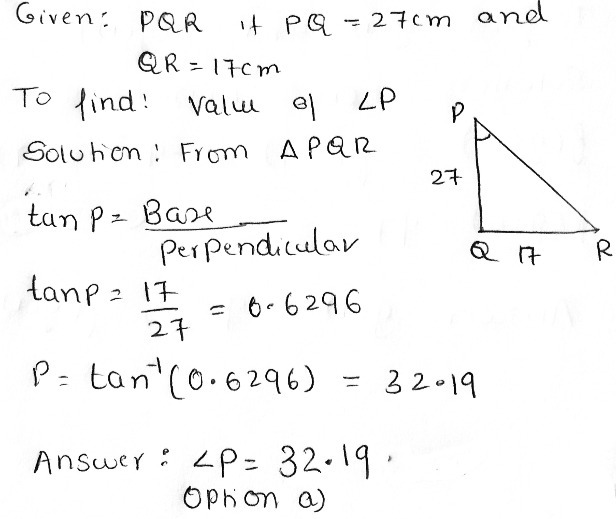 Given: PQR if PQ = 27cm and
QR = 17cm
To find: Value of ∠P
Solution: From △PQR
tan P = Base
perpendicular
tanp = 17
27
= 0.6296
P = tan⁻¹(0.6296) = 32.19
Answer: ∠P = 32.19.
Option a)
P
27
Q 17 R